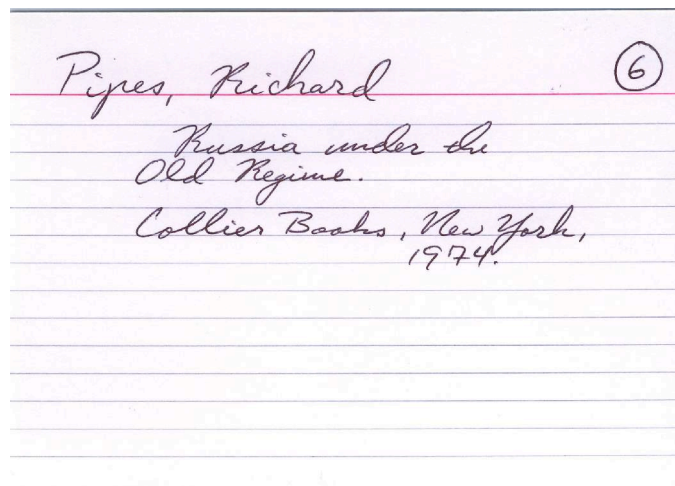 Pipes, Richard 6
Russia under the
Old Regime.
Collier Books, New York,
1974.